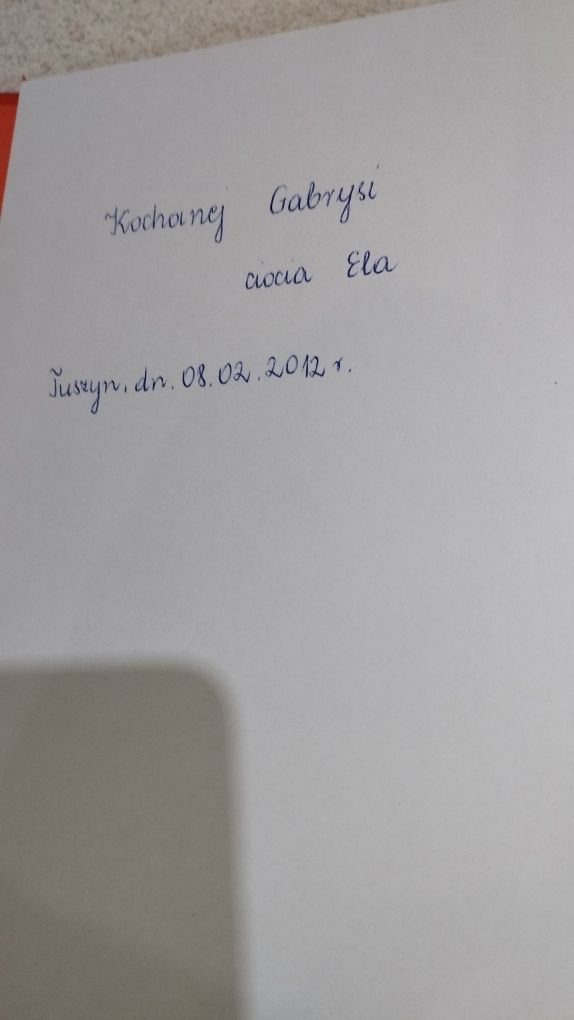 Kochanej Gabrysi
ciocia Ela
Tuszyn, dn. 08.02.2012 r.